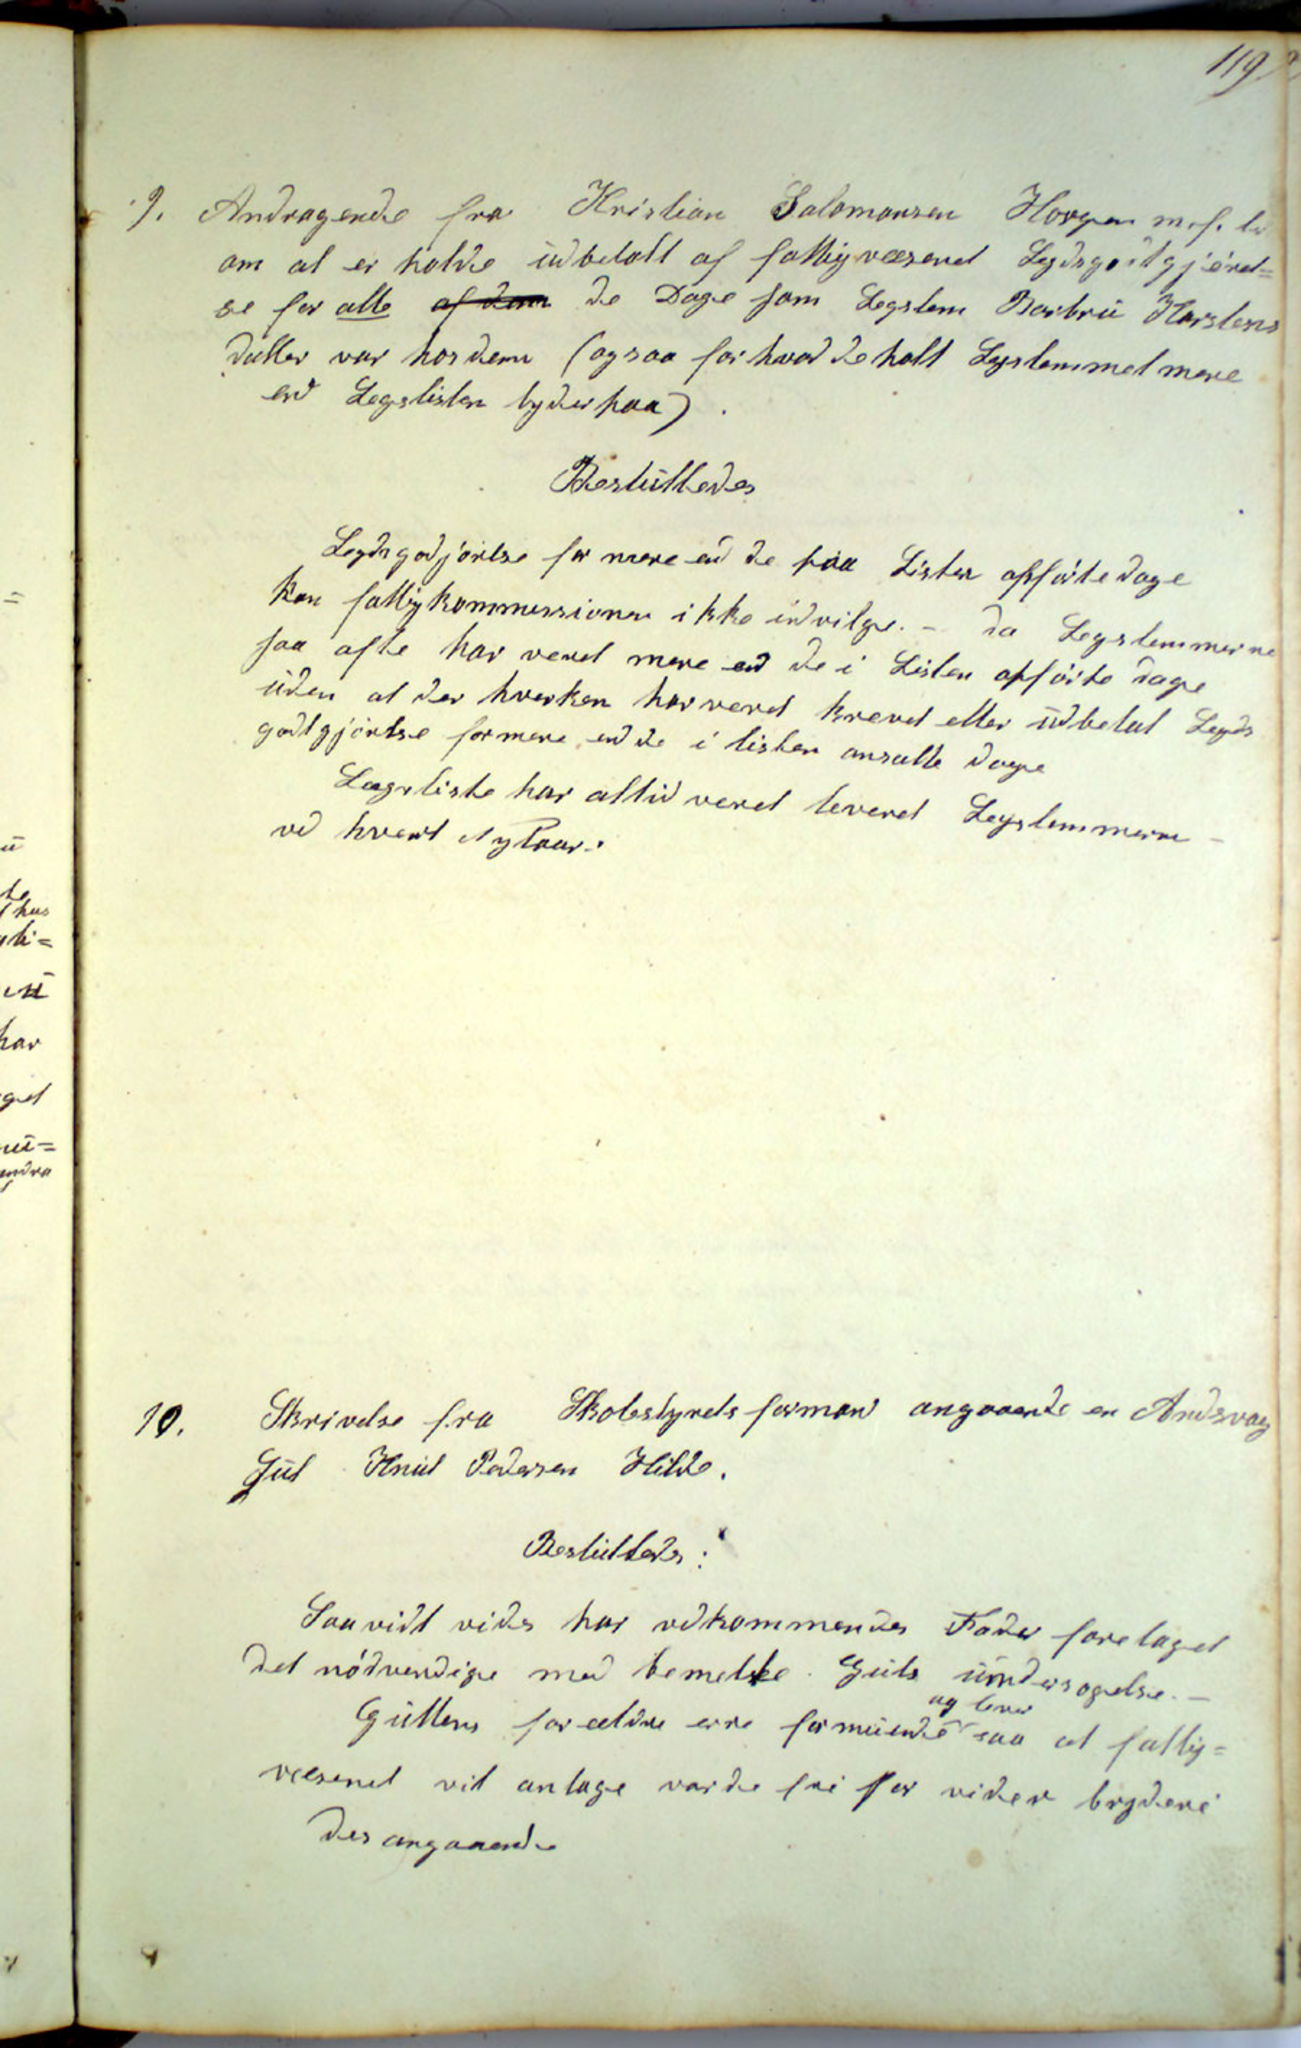 119
9. Andragende fra Kristian Salomonsen Horgen m. fl.
om at er holde udbetalt af fattigvæsenet Legdsgodtgjørel=
se for alle af dem de Dage som Legslem Barbru Karstens
datter var hos dem (ogsaa for hvad de holt Legslemmet mere
end Legslisten lyder paa).
Besluttedes
Legdsgodjørlse for mere end de paa Listen opførte dage
kan fattigkommussionen ikke indvilge. – da Legslemmerne
saa ofte har veret mere end de i Listen opførte dage
uden at der hverken har veret krevet eller udbetal Legds
godtgjørlse for mere end de i listen ansatte dage
Legsliste har altid veret leveret Legslemmerne –
ved hvert Nytaar.
10. Skrivelse fra Skolestyrets formand angaaende en Andsvag
Gut Knut Pedersen Hilde.
Besluttedes:
Saavidt vides har vedkommendes Fader foretaget
det nødvendige med bemeldte Guts undersøgelse. –
og lever
Guttens forældre erre formuende saa at fattig=
væsenet vil antage vorde fri for vider bryderi
des angaaende